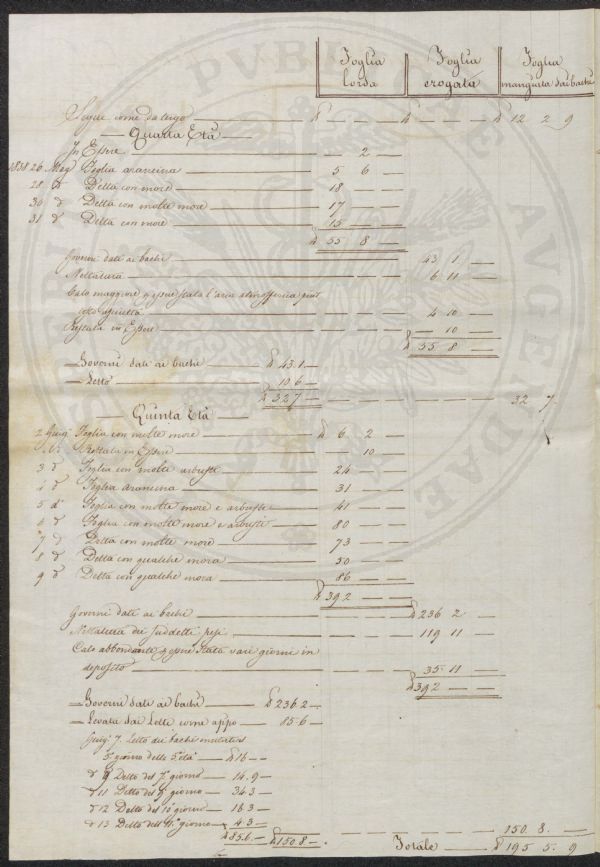 Foglia lorda Foglia erogata Foglia mangiata dai bachi
Segue come da tergo — — — 12 2 9
— Quarta Età —
In Essere — 2 —
1838 26 Mag Foglia arancina — 5 6 —
28 d° Detta con more — 18 — —
30 d° Detta con molte more — 17 — —
31 d° Detta con more — 15 — —
55 8 —
Governi dati ai bachi — 43 1 —
Nettatura — 6 11 —
Calo maggiore essere stata l'aria atmosferica
4 10 —
Restata in Essere — 10 —
55 8 —
— Governi dati ai bachi — 43.1 —
— Letto — 10 6
32 7 — 32 7
— Quinta Età —
2 Giug Foglia con molte more — 6 2 —
Restata in Essere — 10 —
3 d° Foglia con molte arbuste — 24 — —
4 d° Foglia arancina — 31 — —
5 d° Foglia con molte more e arbuste — 41 — —
6 d° Foglia con molte more e arbuste — 80 — —
7 d° Detta con molte more — 73 — —
8 d° Detta con qualche mora — 50 — —
9 d° Detta con qualche mora — 86 — —
392 — —
Governi dati ai bachi — 236 2 —
Nettatura dei suddetti pesi — 119 11 —
Calo abbondante essere stata vari giorni in
deposito — 35 11 —
392 — —
— Governi dati ai bachi — 236 2 —
— Levata dai Letti come appo — 85.6 —
Giug. 7. Letto dei bachi
5° giorno della 5a età — 16 — —
d° 9 Detto del 7° giorno — 14.9 —
d° 11 Detto del 9° giorno — 34.3 —
d° 12 Detto del 10° giorno — 18.3 —
d° 13 Detto dell'11° giorno — 4.3 —
85.6 — 150.8 — 150. 8. —
Totale — 195 5. 9